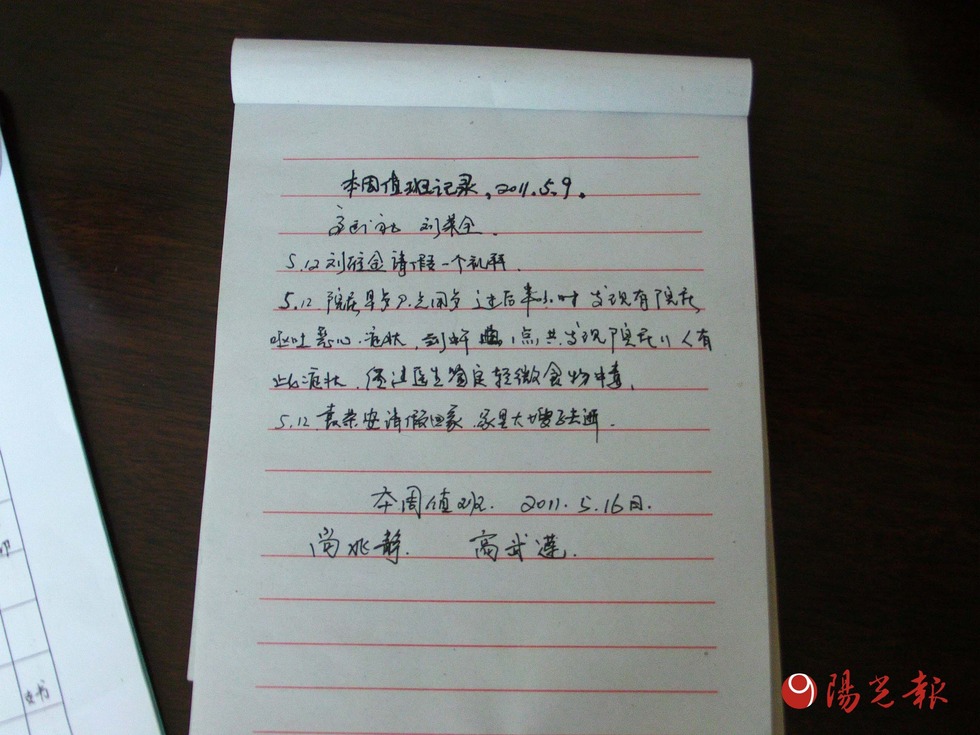 本周值班记录。2011.5.9。
刘荣全.
5.12 刘 全请假一个礼拜.
5.12. 院民早 过后半小时 发现有院民
呕吐恶心症状, 到 1点共发现院民11人有
此症状. 经过医生确定轻微食物中毒.
5.12. 袁荣安请假回家. 家里大嫂去逝.
本周值班. 2011.5.16日.
尚 静. 高武莲.
印
书
陽光報